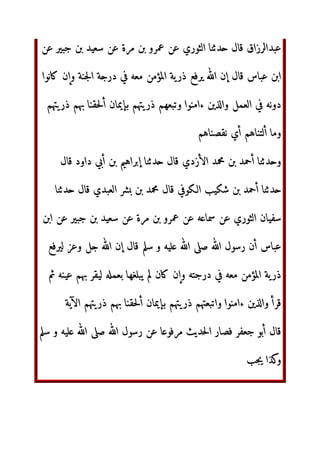 عبدالرزاق قال حدثنا الثوري عن عمرو بن مرة عن سعيد بن جبير عن
ابن عباس قال إن الله يرفع ذرية المؤمن معه في درجة الجنة وإن كانوا
دونه في العمل والذين ءامنوا وتبعهم ذريتهم بإيمان ألحقنا بهم ذريتهم
وما ألتناهم أي نقصناهم
وحدثنا أحمد بن محمد الأزدي قال حدثنا إبراهيم بن أبي داود قال
حدثنا أحمد بن شكيب الكوفي قال محمد بن بشر العبدي قال حدثنا
سفيان الثوري عن سماعه عن عمرو بن مرة عن سعيد بن جبير عن ابن
عباس أن رسول الله صلى الله عليه و سلم قال إن الله جل وعز ليرفع
ذرية المؤمن معه في درجته وإن كان لم يبلغها بعمله ليقر بهم عينه ثم
قرأ والذين ءامنوا واتبعتهم ذريتهم بإيمان ألحقنا بهم ذريتهم الآية
قال أبو جعفر فصار الحديث مرفوعا عن رسول الله صلى الله عليه و سلم
وكذا يجب